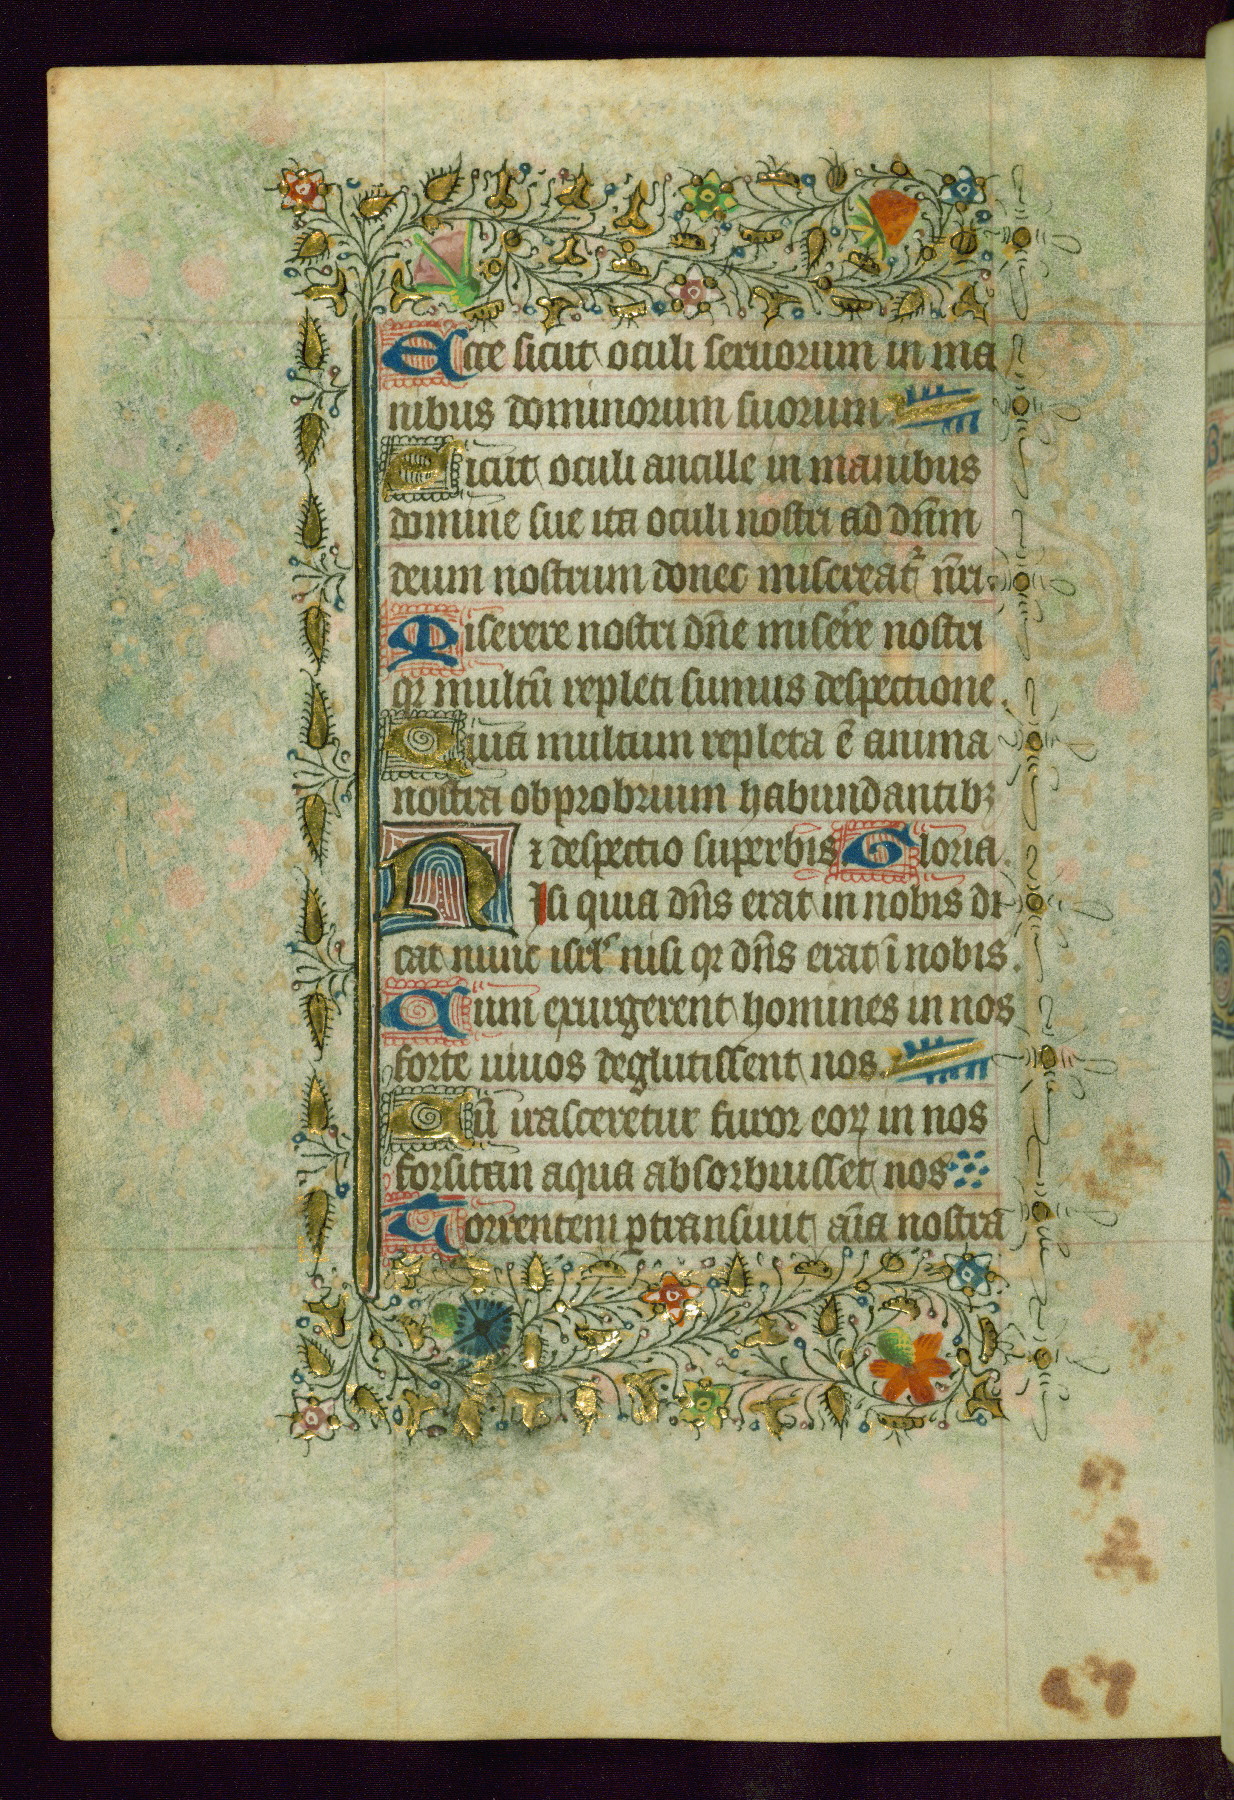 Ecce sicut oculi seruorum in ma
nibus dominorum suorum.
Sicut oculi ancille in manibus
domine sue ita oculi nostri ad dn̄m
deum nostrum donec misereat᷑ nr̄i
Miserere nostri dn̄e miser̄e nostri
qꝛ multū repleti sumus despectione.
Quia multum repleta ē anima
nostra obprobrium habundantibꝫ
⁊ despectio superbis Gloria.
Nisi quia dn̄s erat in nobis di
cat nunc isrl̄ nisi qꝛ dn̄s erat ī nobis.
Cum exurgerent homines in nos
forte uiuos deglutissent nos.
Cū irasceretur furor eoꝝ in nos
forsitan aqua absorbuisset nos
Torrentem ꝑtransiuit aīa nostra